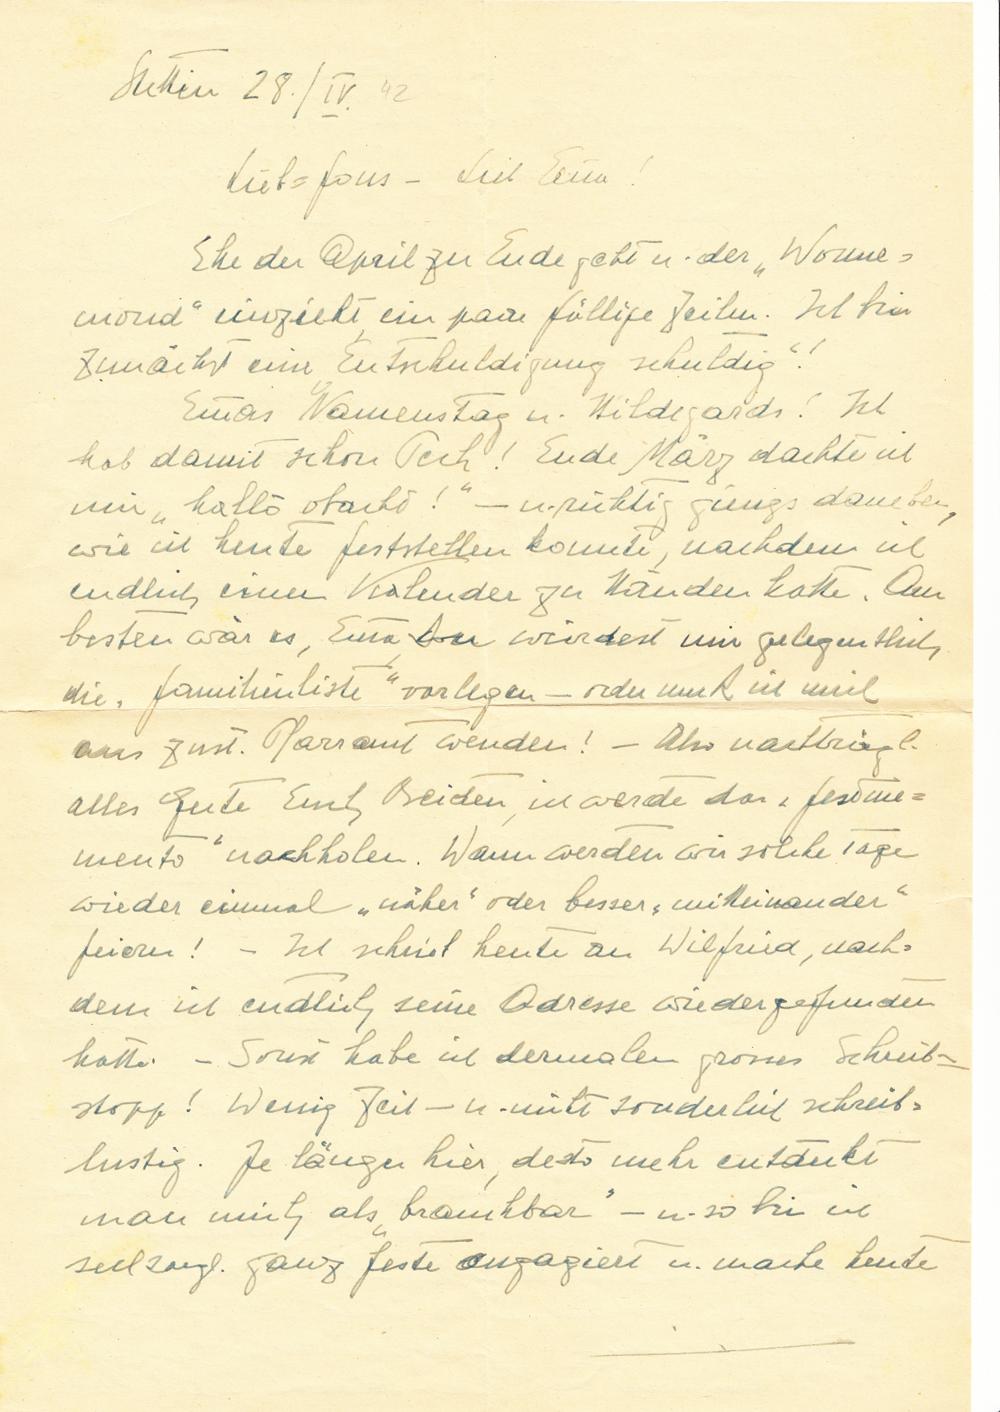 Stettin 28./IV. 42
Lieb-Fons – Lieb Erna!
Ehe der April zu Ende geht u. der „Wonne=
mond" einzieht, ein paar fällige Zeilen. Ich bin
zunächst eine „Entschuldigung schuldig"!
Ernas Namenstag u. Hildegards! Ich
hab damit schon Pech! Ende März dachte ich
mir „hallo obacht!" – u. richtig gings daneben,
wie ich heute feststellen konnte, nachdem ich
endlich einen Kalender zu Händen hatte. Am
besten wär es, Erna, Du würdest mir gelegentlich
die „Familienliste" vorlegen – oder muss ich mich
ans zust. Pfarramt wenden! – Also nachträgl.
alles Gute Euch Beiden, ich werde das „Festme=
mento" nachholen. Wann werden wir solche Tage
wieder einmal „näher" oder besser „mitteinander"
feiern! – Ich schrieb heute an Wilfried, nach=
dem ich endlich seine Adresse wiedergefunden
hatte. – Sonst habe ich dermalen grosses Schreib=
stopp! Wenig Zeit – u. nicht sonderlich schreib=
lustig. Je länger hier, desto mehr entdeckt
man mich als „brauchbar" – u. so bin ich
seelsorgl. ganz feste engagiert u. mache heute